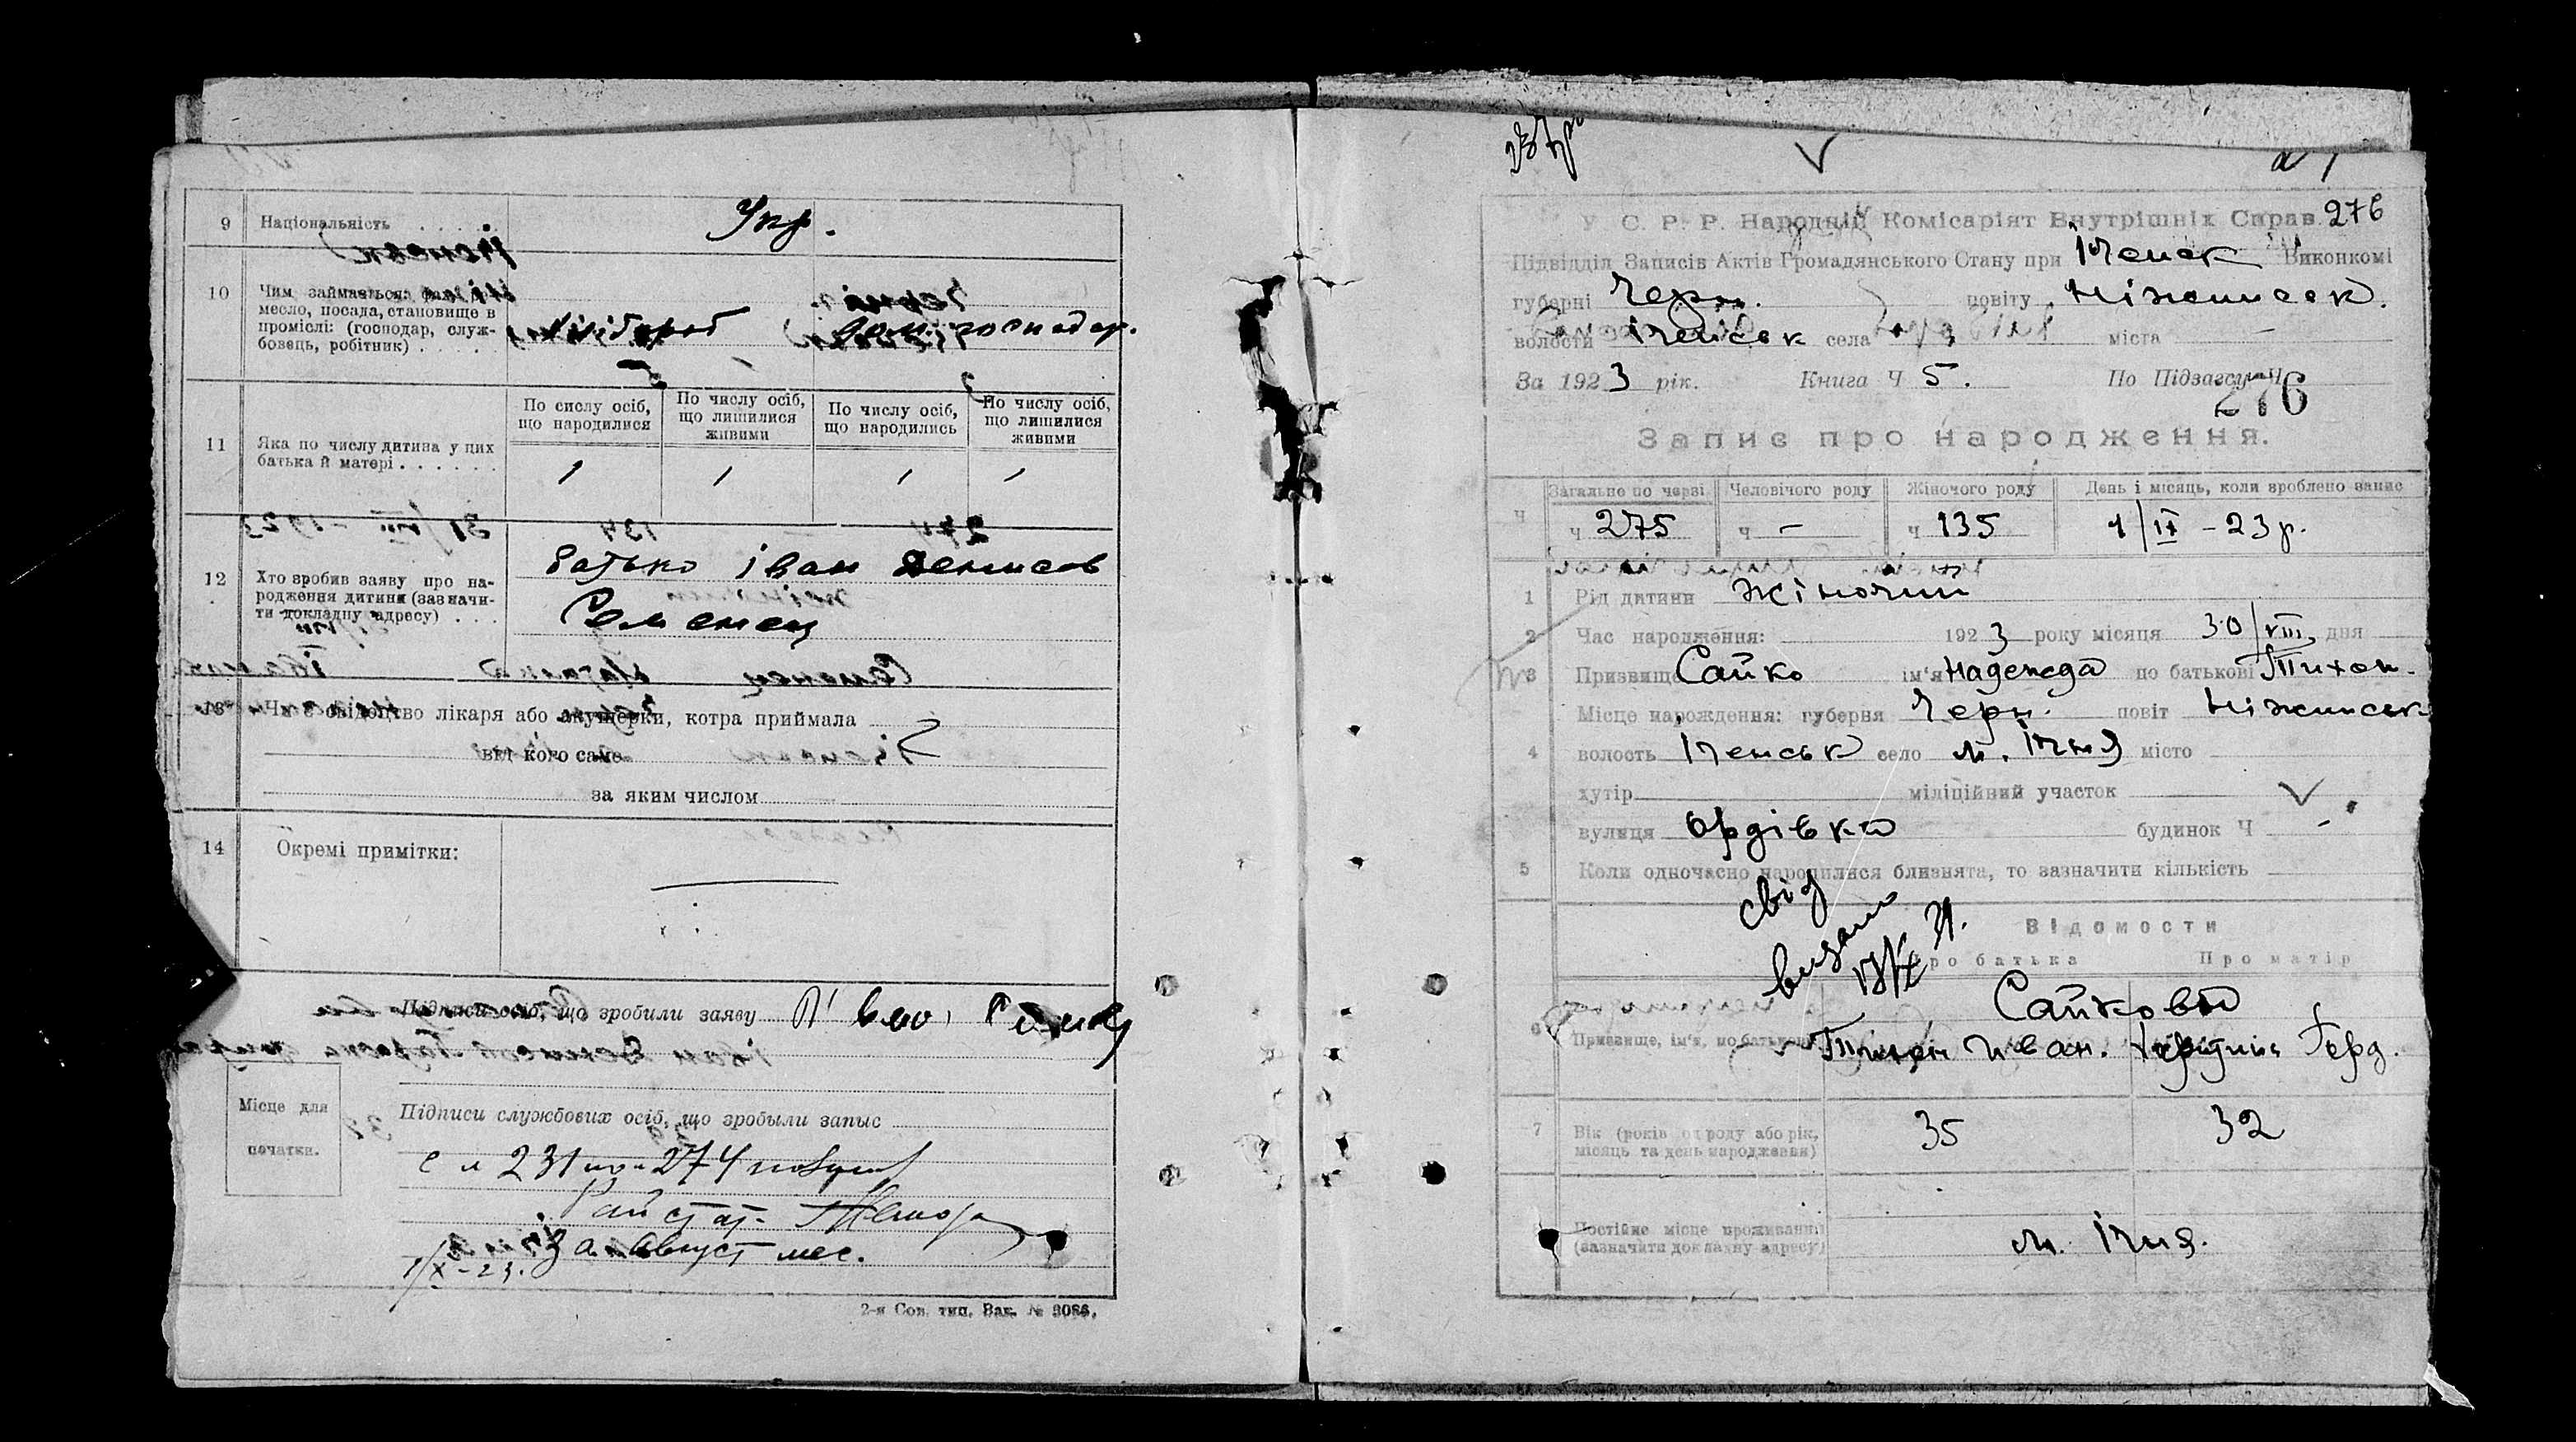 9 Національність . . . . . Укр.
10 Чим займається: фах, ре-
месло, посада, становище в
проміслі: (господар, служ-
бовець, робітник) . . . . .
хлібороб дом. господар.
11 Яка по числу дитина у цих
батька й матері . . . . . .
По сислу осіб,
що народилися
По числу осіб,
що лишилися
живими
По числу осіб,
що народились
По числу осіб,
що лишилися
живими
1 1 1 1
12 Хто зробив заяву про на-
родження дитини (зазначи-
ти докладну адресу) . . .
батько Іван Денисов
Семенец
13 Чи є свідоцтво лікаря або акушерки, котра приймала
від кого саме
за яким числом
14 Окремі примітки:
Підписи осіб, що зробили заяву
Місце для
печатки.
Підписи службових осіб, що зробыли запыс
с № 231 по 274
За август мес.
1/IX-23.
2-я Сов. тип. Зак. № 3086.
276
У. С. Р. Р. Народній Комісаріят Внутрішніх Справ.
Підвідділ Записів Актів Громадянського Стану при Іченск Виконкомі
губерні Черн. повіту Ніжинськ.
волости Іченськ села міста —
За 1923 рік. Книга Ч 5. По Підзагсу Ч
276
Запис про народження.
Ч
Загальне по черзі
Человічого роду
Жіночого роду
День і місяць, коли зроблено запис
ч 275 ч — ч 135 1/IX-23р.
1 Рід дитини жіночий
2 Час народження: 1923 року місяця 30/VIII дня
3 Призвище Сайко ім'я Надежда по батькові Тихон.
Місце народження: губерня Черн. повіт Ніжинськ
4 волость Іченськ село м. Ічня місто
хутір міліційний участок
вулиця Ордівка будинок Ч —
5 Коли одночасно народилися близнята, то зазначити кількість
свід
видано
Відомости
Про батька Про матір
6 Призвище, ім'я, по батькові
Сайкови
Тихон Иван. Герд.
7 Вік (років од роду або рік,
місяць та день народження)
35 32
Постійне місце проживання
(зазначити докладну адресу)
м. Ічня.